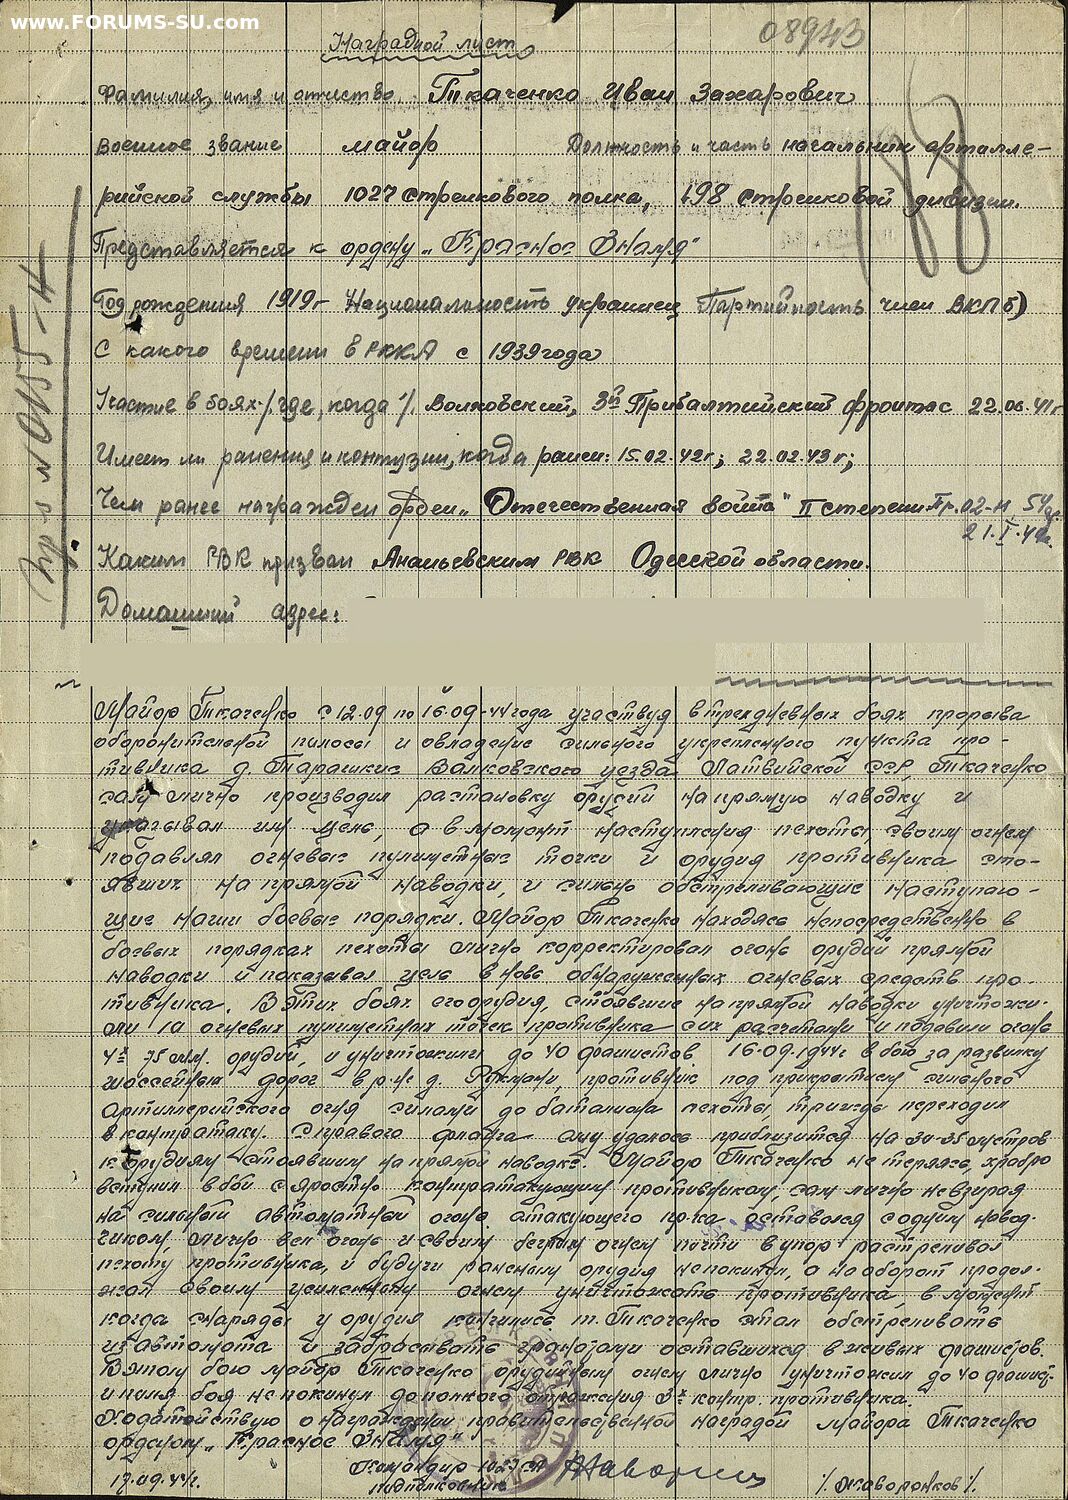 www.FORUMS-SU.com
08943
Наградной лист
Фамилия, имя и отчество. Ткаченко Иван Захарович
Военное звание майор Должность и часть начальник артилле-
рийской службы 1027 стрелкового полка, 198 стрелковой дивизии.
188
Представляется к ордену „Красное Знамя"
Год рождения 1919г Национальность украинец Партийность член ВКПб)
С какого времени в РККА с 1939 года
Участие в боях /где, когда/. Волховский, 3й Прибалтийский фронт с 22.06.41г
Имеет ли ранения и контузии, когда ранен: 15.02.42г; 22.02.43г;
Чем ранее награжден орден „Отечественная война" II степени Пр. 02-н
21.I.44г.
Каким РВК призван Ананьевским РВК Одесской области.
Домашний адрес:
пр-з №0155-н
Майор Ткаченко с 12.09 по 16.09-44 года участвуя в трехдневных боях прорыва
оборонительной полосы и овладение сильного укрепленного пункта про-
тивника д. Тарашкис Валковского уезда Латвийской ССР, Ткаченко
сам лично производил растановку орудий на прямую наводку и
указывал им цель, а в момент наступления пехоты своим огнем
подавлял огневые пулиметные точки и орудия противника сто-
явших на прямой наводки, и сильно обстреливающие наступаю-
щие наши боевые порядки. Майор Ткаченко находясь непосредственно в
боевых порядках пехоты лично корректировал огонь орудий прямой
наводки и показывал цель вновь обнаруженных огневых средств про-
тивника. В этих боях его орудия, стоявшие на прямой наводки уничтожи-
ли 10 огневых пулиметных точек противника с их расчетами и подавили огонь
4х 75 м.м. орудий, и уничтожили до 40 фашистов 16.09.1944г в бою за развилку
шоссейных дорог в р-не д. противник под прикрытием сильного
артиллерийского огня силами до баталиона пехоты, трижды переходил
в контратаку. С правого фланга ему удалось приблизится на 30-35 метров
к орудиям стоявшим на прямой наводке. Майор Ткаченко не теряясь, храбро
вступил в бой с яростно контратакующим противником, сам лично невзирая
на сильный автоматный огонь атакующего пр-ка оставался с одним навод-
чиком, лично вел огонь и своим беглым огнем почти в упор растреливал
пехоту противника, и будучи раненым орудия не покинул, а наоборот продол-
жал своим усиленным огнем уничтожать противника, в момент
когда снаряды у орудия кончились т. Ткаченко стал обстреливать
из автомата и забрасывать гранатами оставшихся в живых фашистов.
В этом бою майор Ткаченко орудийным огнем лично уничтожил до 40 фашист.
и поля боя не покинул до полного отражения 3х контр. противника.
Ходатайствую о награждении правительственной наградой майора Ткаченко
орденом „Красное Знамя"
Командир 1027 СП
подполковник
/Жаворонков/.
17.09.44г.